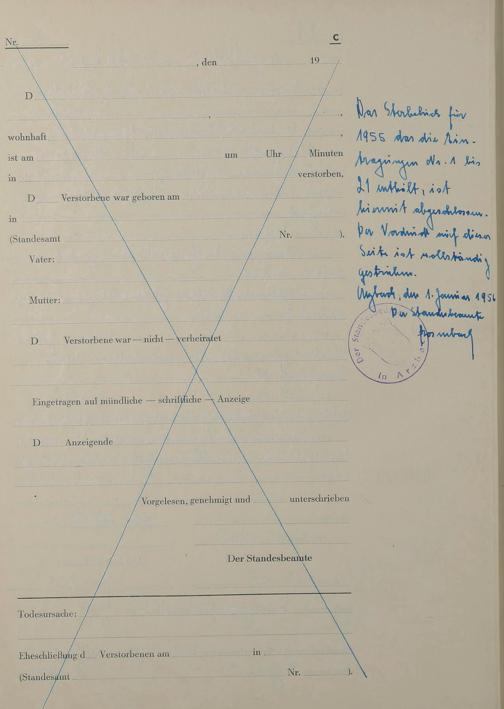 Nr.
C
, den 19
D
,
wohnhaft ,
ist am um Uhr Minuten
in verstorben,
D Verstorbene war geboren am
in
(Standesamt Nr. ).
Vater:
Mutter:
D Verstorbene war — nicht — verheiratet
Eingetragen auf mündliche — schriftliche — Anzeige
D Anzeigende
Vorgelesen, genehmigt und unterschrieben
Der Standesbeamte
Todesursache:
Eheschließung d Verstorbenen am in
(Standesamt Nr. ).
Das Sterbebuch für
1955 das die Ein-
tragungen Nr. 1 bis
21 enthält, ist
hiermit abgeschlossen.
Der Vordruck auf dieser
Seite ist vollständig
gestrichen.
Arzbach, den 1. Januar 1956
Der Standesbeamte
Der Standesbeamte
in Arzbach